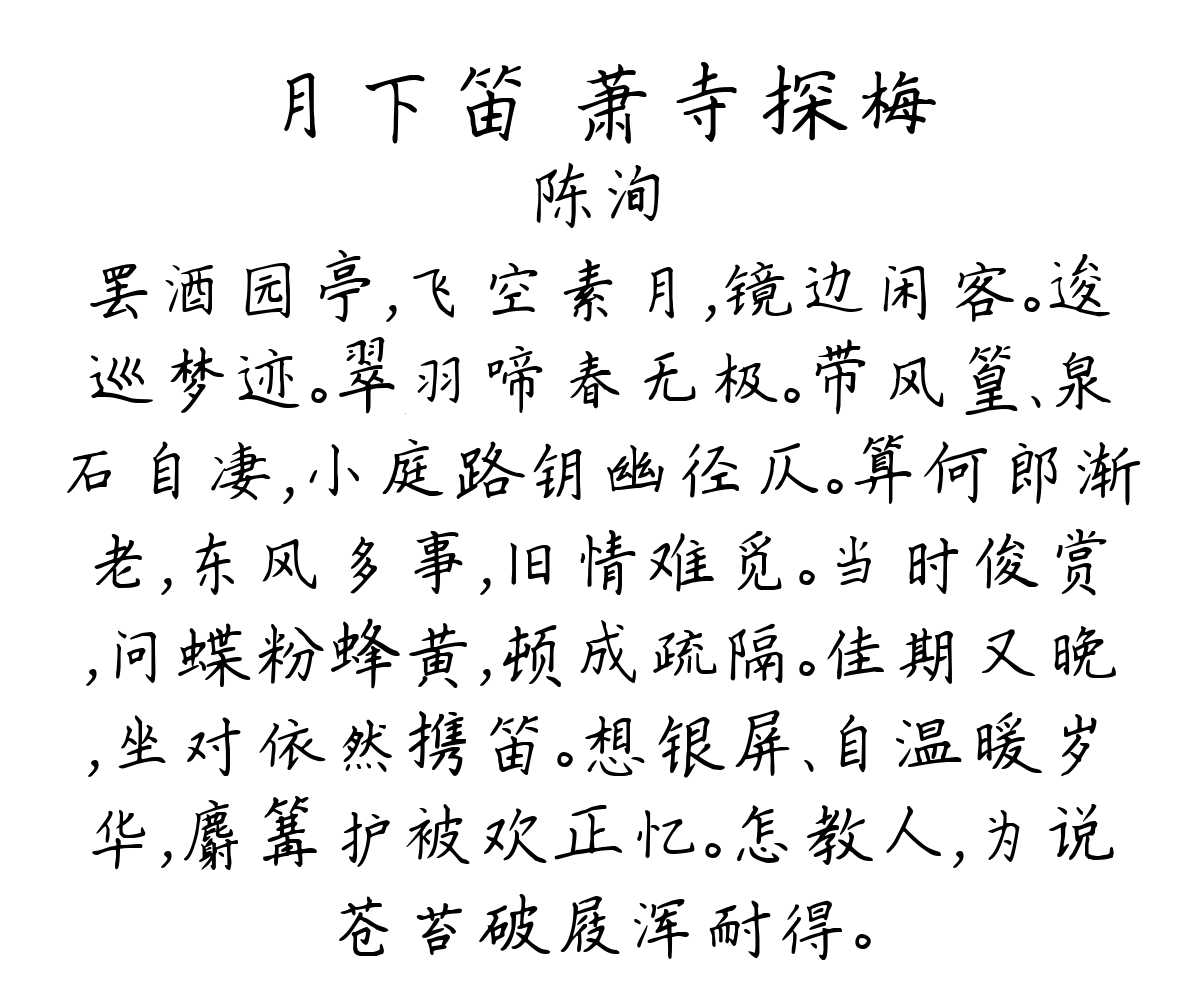 月下笛 萧寺探梅
陈洵
罢酒园亭,飞空素月,镜边闲客。逡
巡梦迹。翠羽啼春无极。带风篁、泉
石自凄,小庭路钥幽径仄。算何郎渐
老,东风多事,旧情难觅。当时俊赏
,问蝶粉蜂黄,顿成疏隔。佳期又晚
,坐对依然携笛。想银屏、自温暖岁
华,麝篝护被欢正忆。怎教人,为说
苍苔破屐浑耐得。